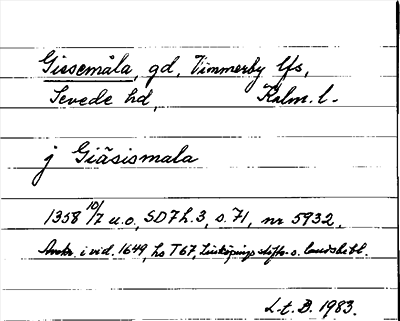 Gissemåla, gd, Vimmerby lfs,
Sevede hd, Kalm. l.
j Giäsismala
1358 10/7 u.o., SD7h.3, s. 71, nr 5932.
Avskr. i vid. 1649, hs T67, Linköpings stifts- o. landsbibl.
L.t. B. 1983.